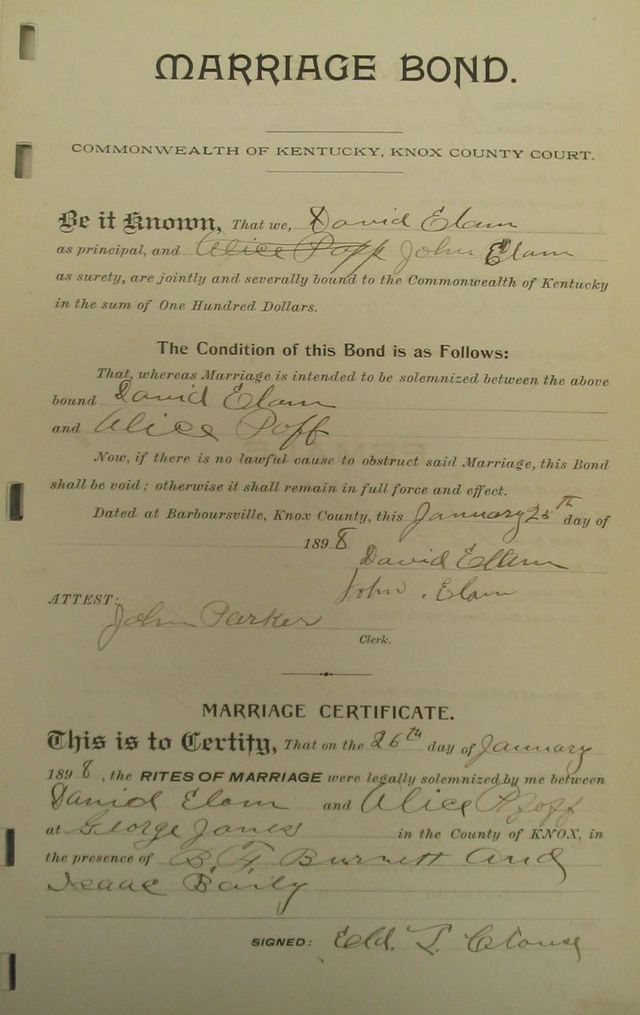 MARRIAGE BOND.
COMMONWEALTH OF KENTUCKY, KNOX COUNTY COURT.
Be it Known, That we, David Elam
as principal, and Alice Poff John Elam
as surety, are jointly and severally bound to the Commonwealth of Kentucky
in the sum of One Hundred Dollars.
The Condition of this Bond is as Follows:
That, whereas Marriage is intended to be solemnized between the above
bound David Elam
and Alice Poff
Now, if there is no lawful cause to obstruct said Marriage, this Bond
shall be void; otherwise it shall remain in full force and effect.
Dated at Barboursville, Knox County, this January 25th day of
1898
David Elam
John . Elam
ATTEST:
John Parker
Clerk.
MARRIAGE CERTIFICATE.
This is to Certify, That on the 26th day of January
1898, the RITES OF MARRIAGE were legally solemnized by me between
David Elam and Alice Poff
at George Jones in the County of KNOX, in
the presence of B. F. Burnett and
Isaac Baily
SIGNED: Eld.